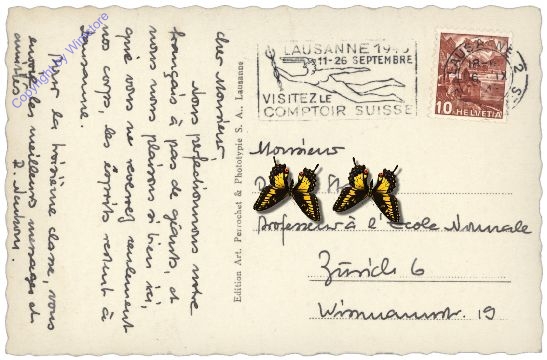 Copyright by Winstore
Cher Monsieur
Nous perfectionnons notre
français à pas de géants, et
nous nous plaisons si bien ici,
que vous ne recevrez seulement
nos corps, les esprits restent à
Lausanne.
Pour la troisième classe, vous
envoie les meilleurs messages et
amitiés
Edition Art. Perrochet & Phototypie S. A., Lausanne
LAUSANNE
11-26 SEPTEMBRE
VISITEZ LE
COMPTOIR SUISSE
LAUSANNE
10 HELVETIA
Monsieur
professeur à l'Ecole Normale
Zürich 6
19